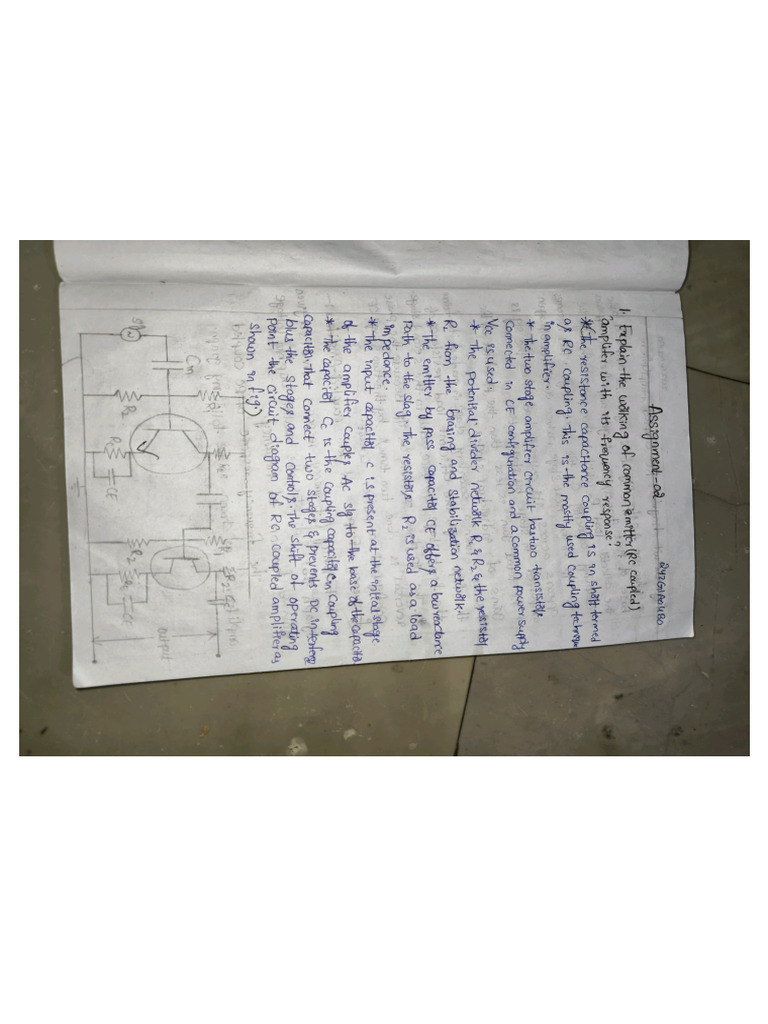 Assignment-02.
1. Explain the walking of common emitter (RC coupled)
amplifier with its frequency response?
* The resistance capacitance coupling is in shaft termed
as RC coupling. This is the mostly used coupling technique
in amplifier.
* The two stage amplifier circuit has two transistors
connected in CE configuration and a common power supply
Vcc is used.
* The potential divider network R1 & R2 & the resistor
form the biasing and stabilization network.
* The emitter by pass capacitor CE offers a low reactance
path to the slag. The resistors R2 is used as a load
impedance.
* The input capacitor C is present at the initial stage
of the amplifier couples AC sig to the base of the capacitor
* The capacitor Cc is the coupling capacitor Cn Coupling
capacitor. That connect two stages & prevents DC interference
blw the stages and controls. The shift of operating
point the circuit diagram of RC coupled amplifier as
shown in fig)
Cin
R2
CE
R2
CE
output